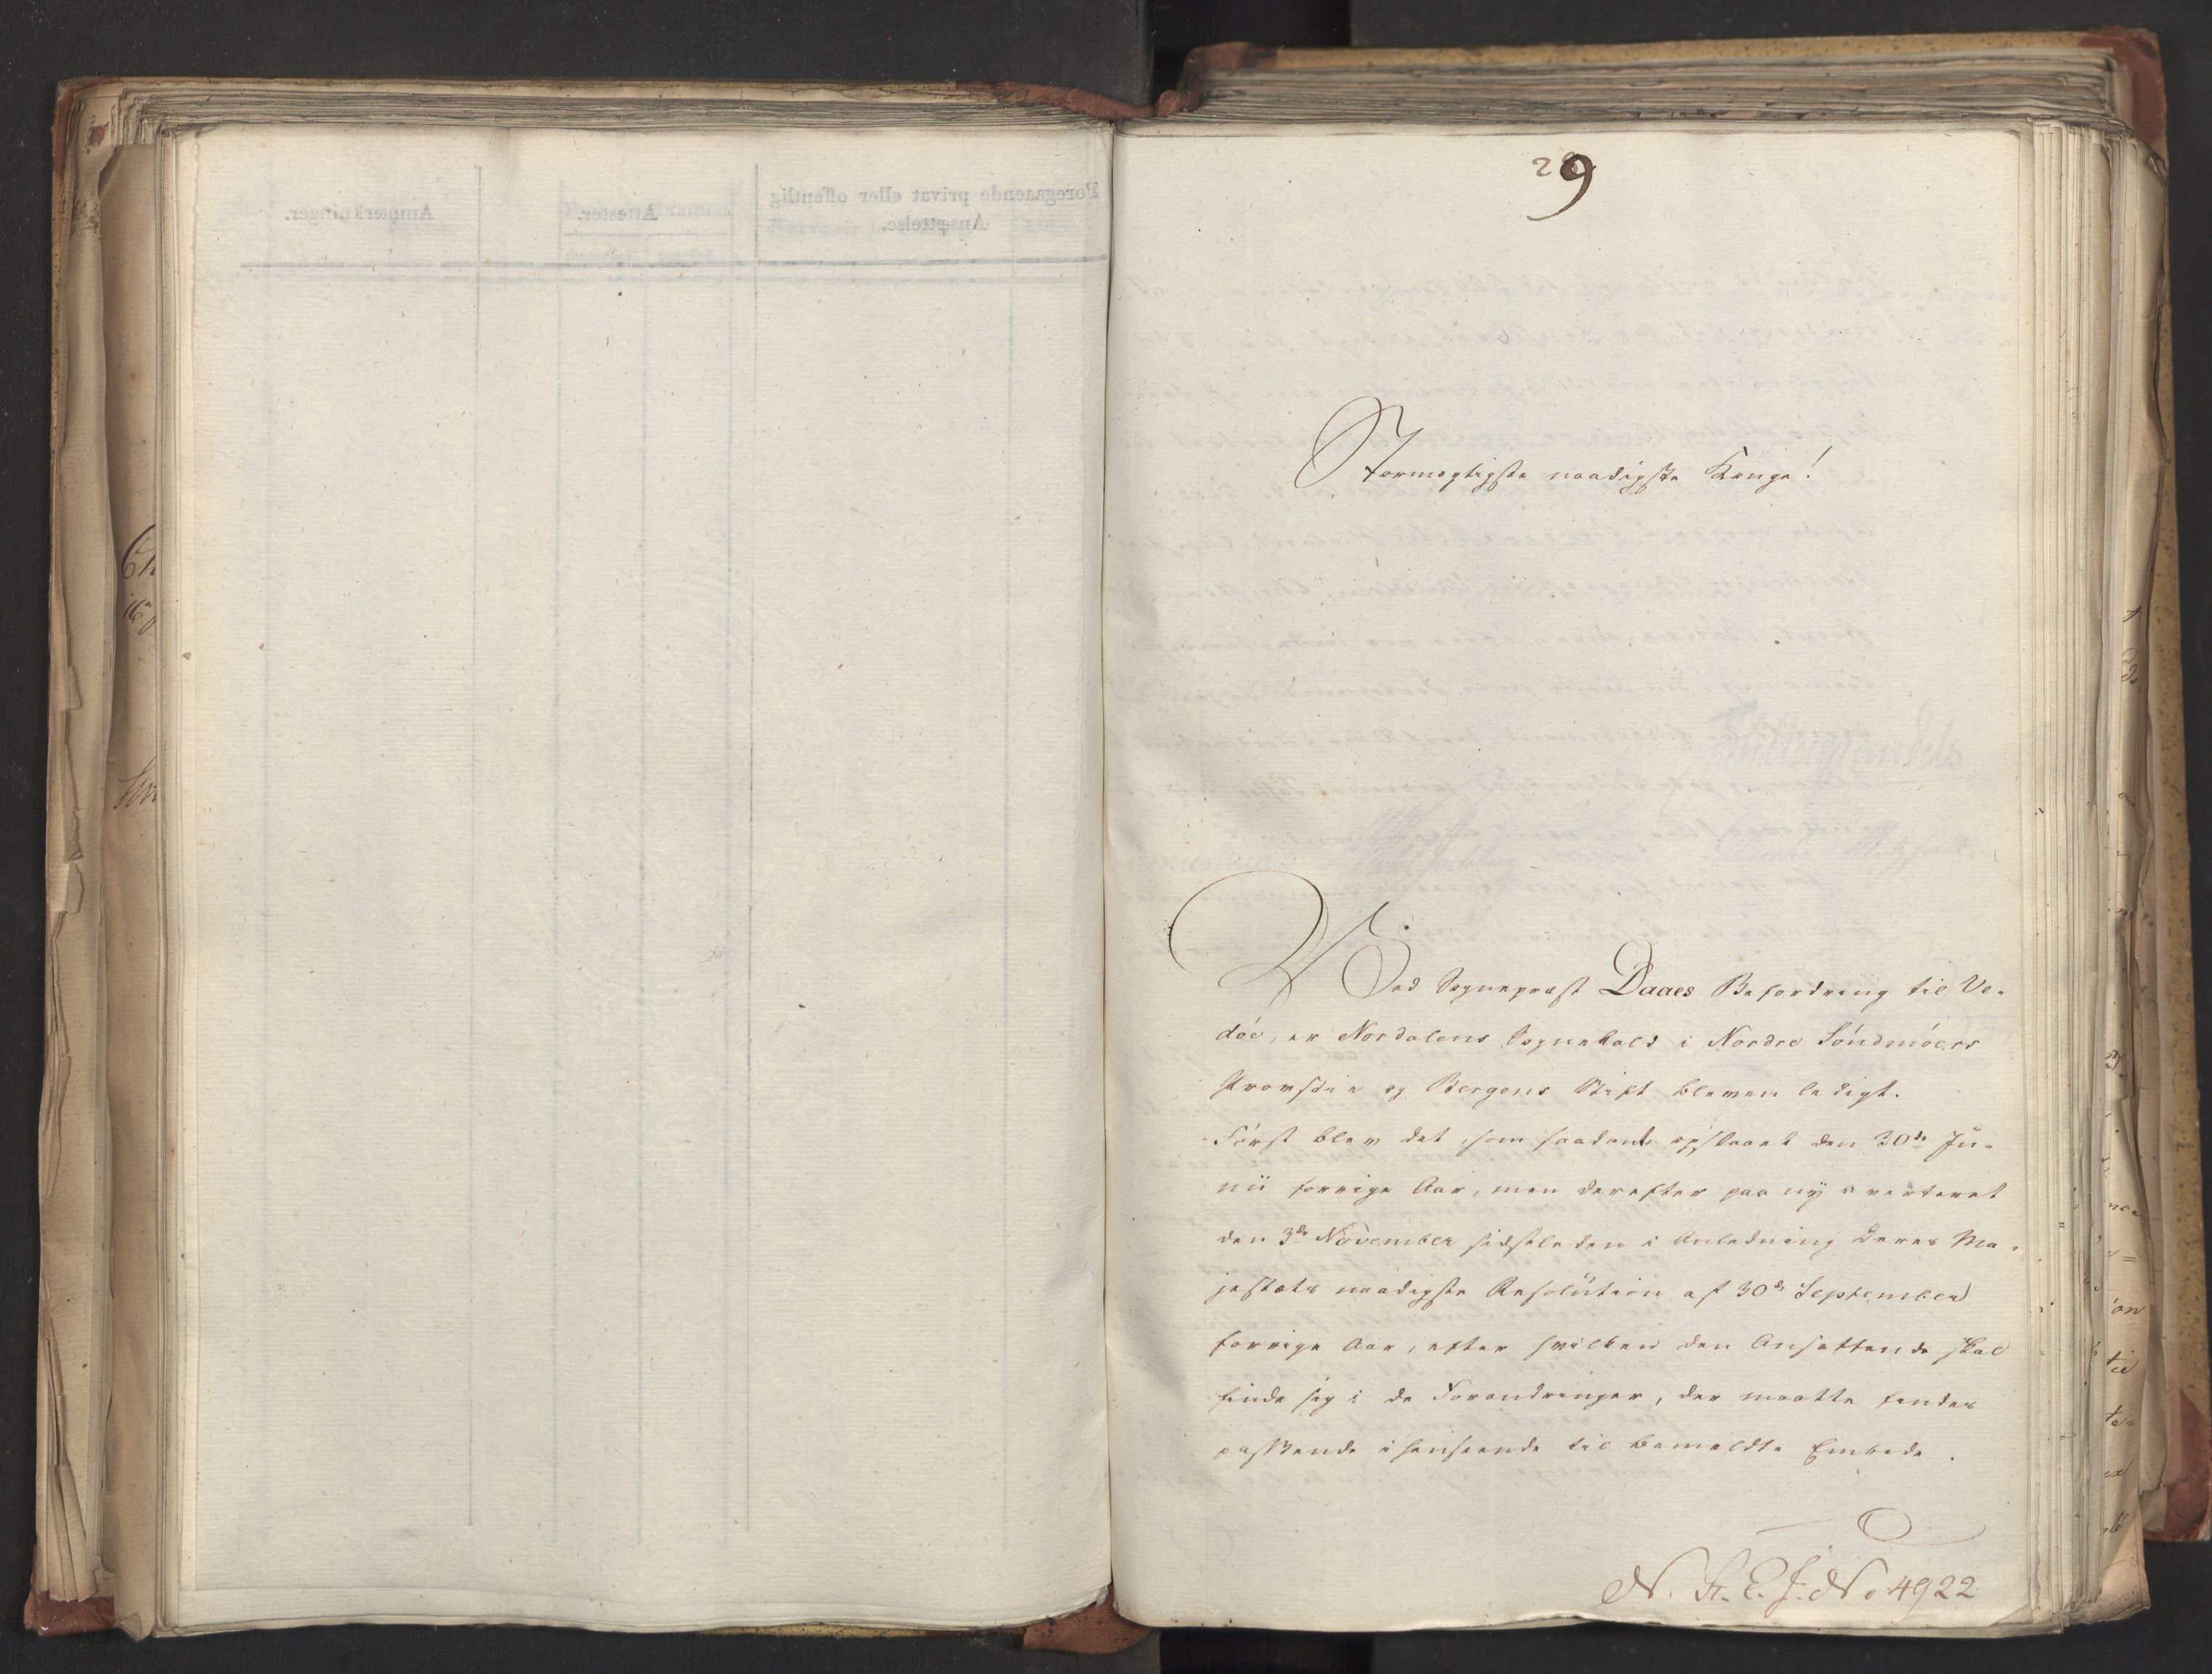 29
Stormægtigste naadigste Konge!
Ved Sognepræst Daaes Befordring til Ve-
döe, er Nordalens Sognekald i Nordre Söndmöers
Provstie og Bergens Stift bleven ledigt.
Först blev det som saadant opslaaet den 30de Ju-
nii forrige Aar, men derefter paa ny averteret
den 3de November sidstleden i Anledning Deres Ma-
jestæts naadigste Resolution af 30de September
forrige Aar, efter hvilken den Ansættende skal
finde sig i de Forandringer, der maatte findes
passende i Henseende til bemeldte Embede.
N. St. E. J. No 4922
Foregaaende privat eller offentlig
Ansættelse.
Attester.
Anmærkninger.